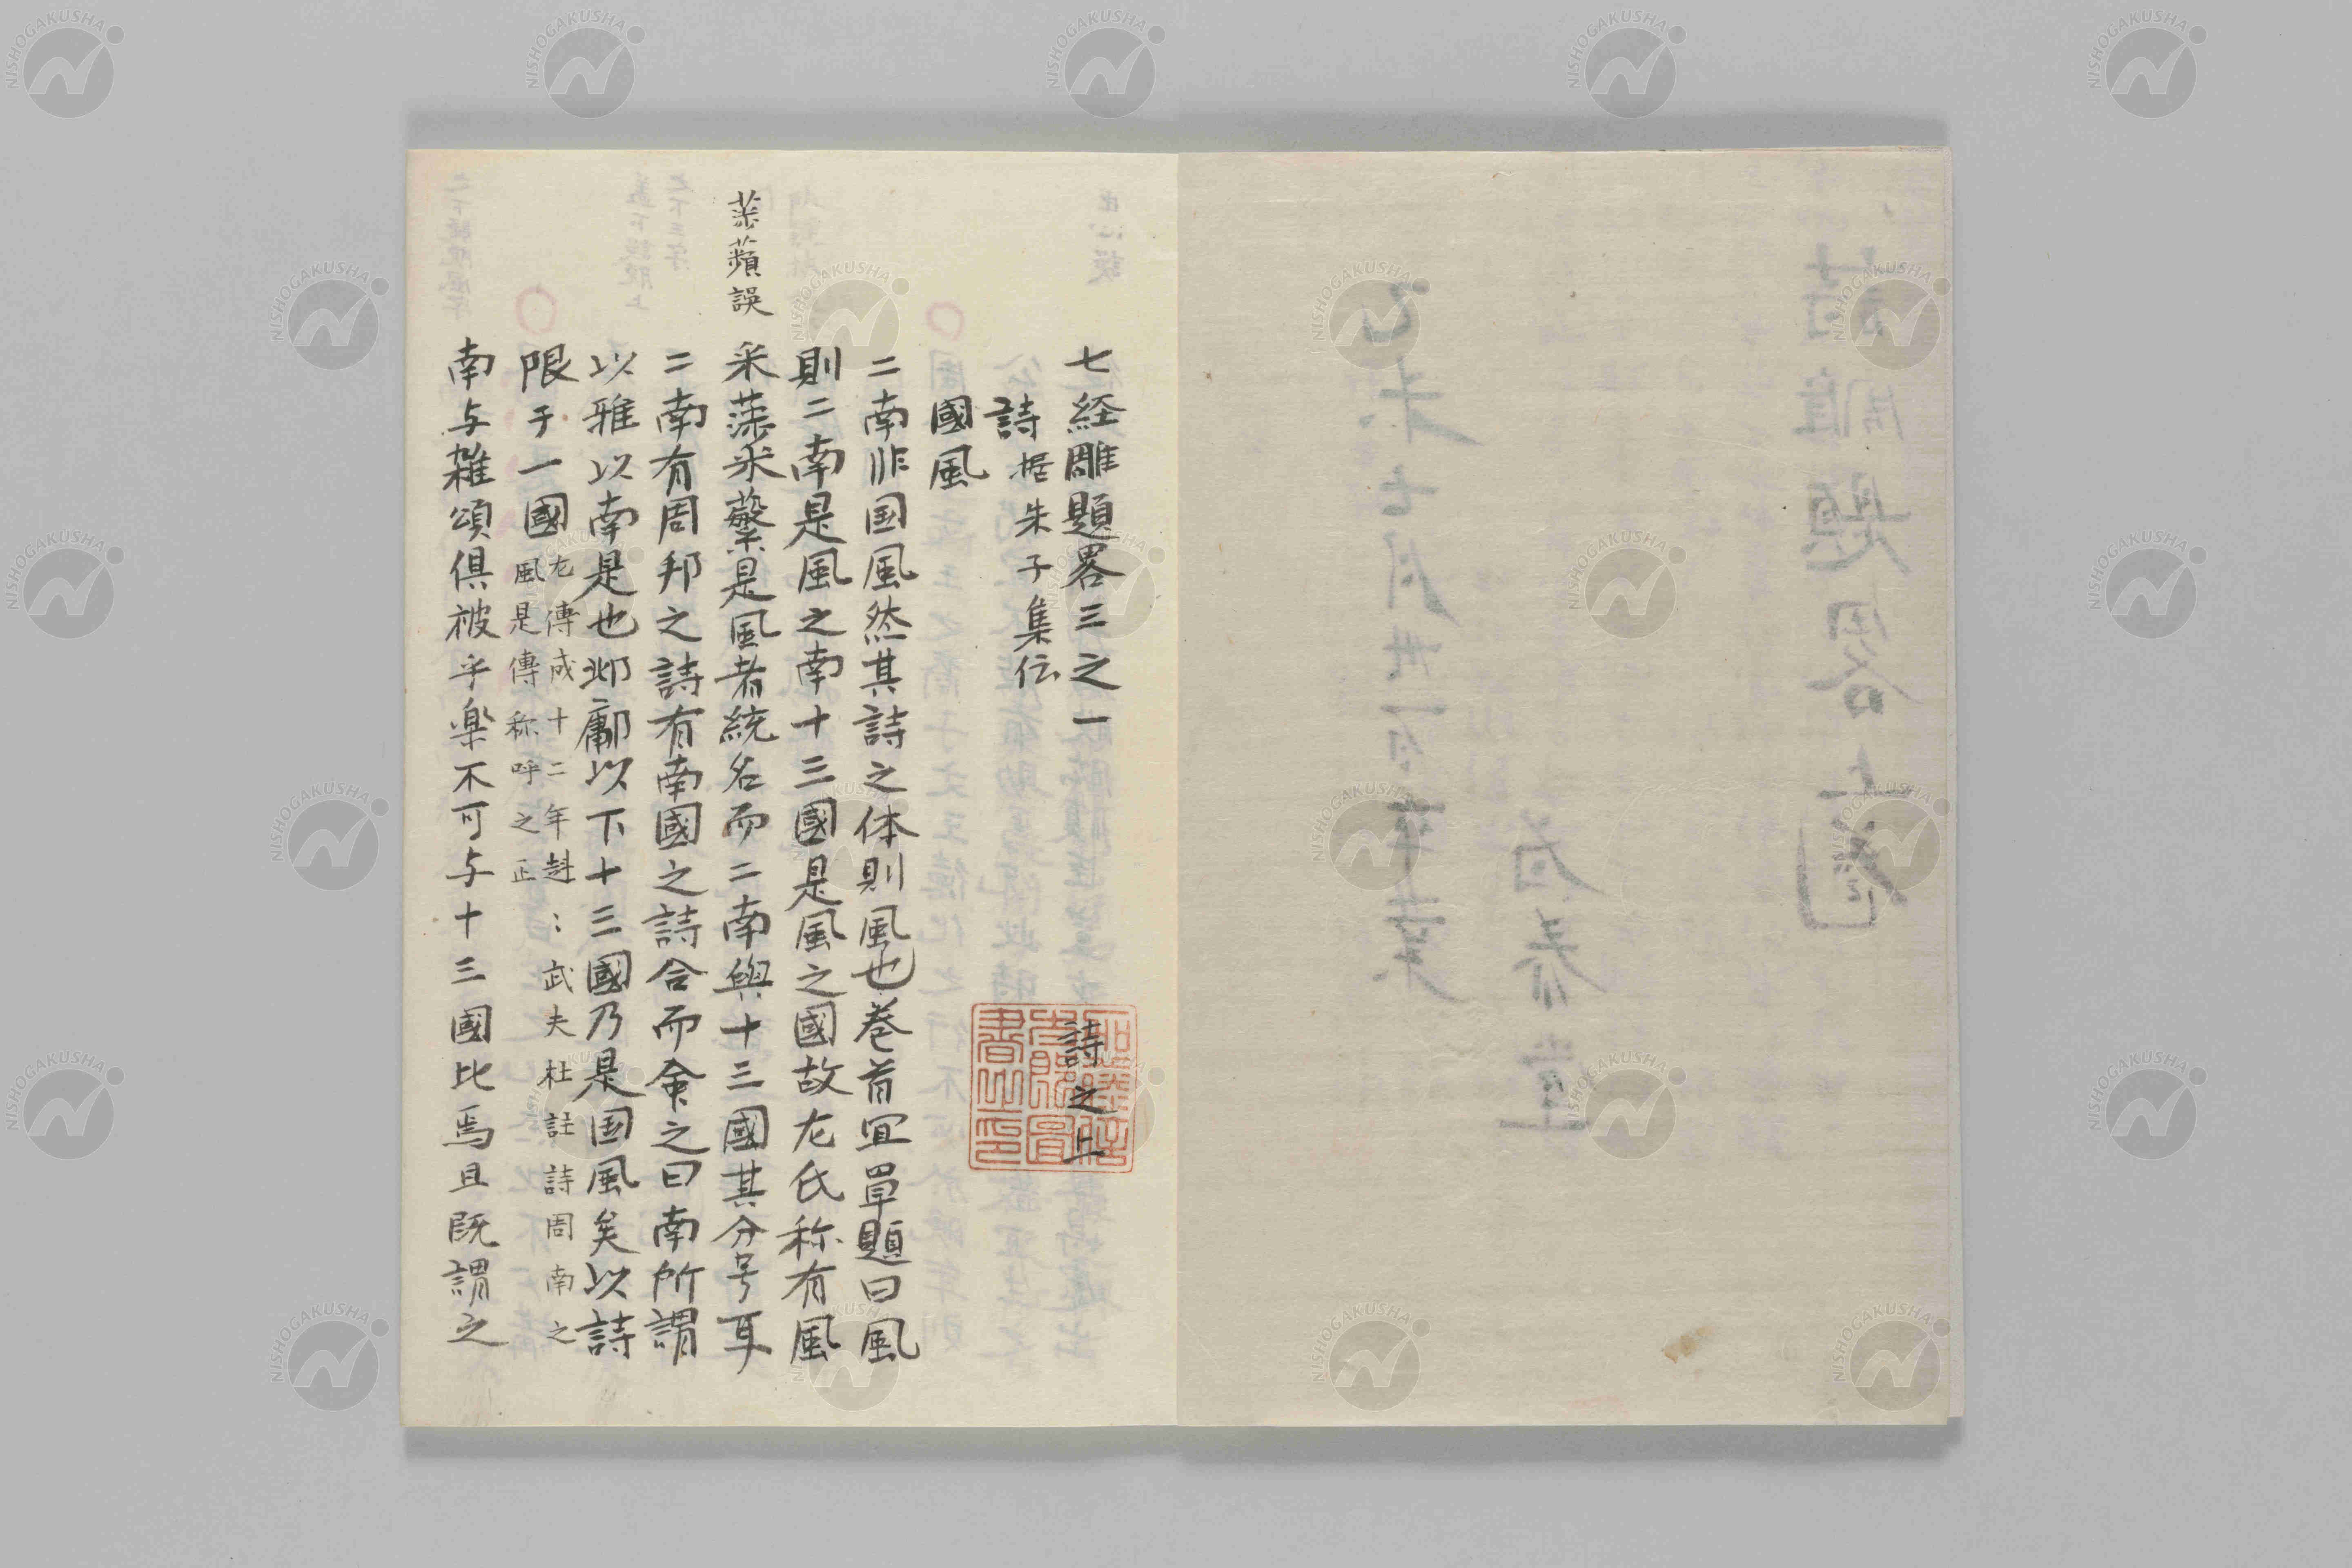 七経雕題畧三之一　詩之上
詩　据朱子集伝
國風
二南非国風然其詩之体則風也巻首宜単題曰風
則二南是風之南十三國是風之國故左氏称有風
蘋誤
采采蘩是風者統名而二南與十三國其分号耳
二南有周邦之詩有南國之詩合而命之曰南所謂
以雅以南是也邶鄘以下十三國乃是国風矣以詩
限于一國
左傳成十二年赳〻武夫杜註詩周南之
風是傳称呼之正
南与雑頌俱被乎楽不可与十三國比焉且既謂之
NISHOGAKUSHA